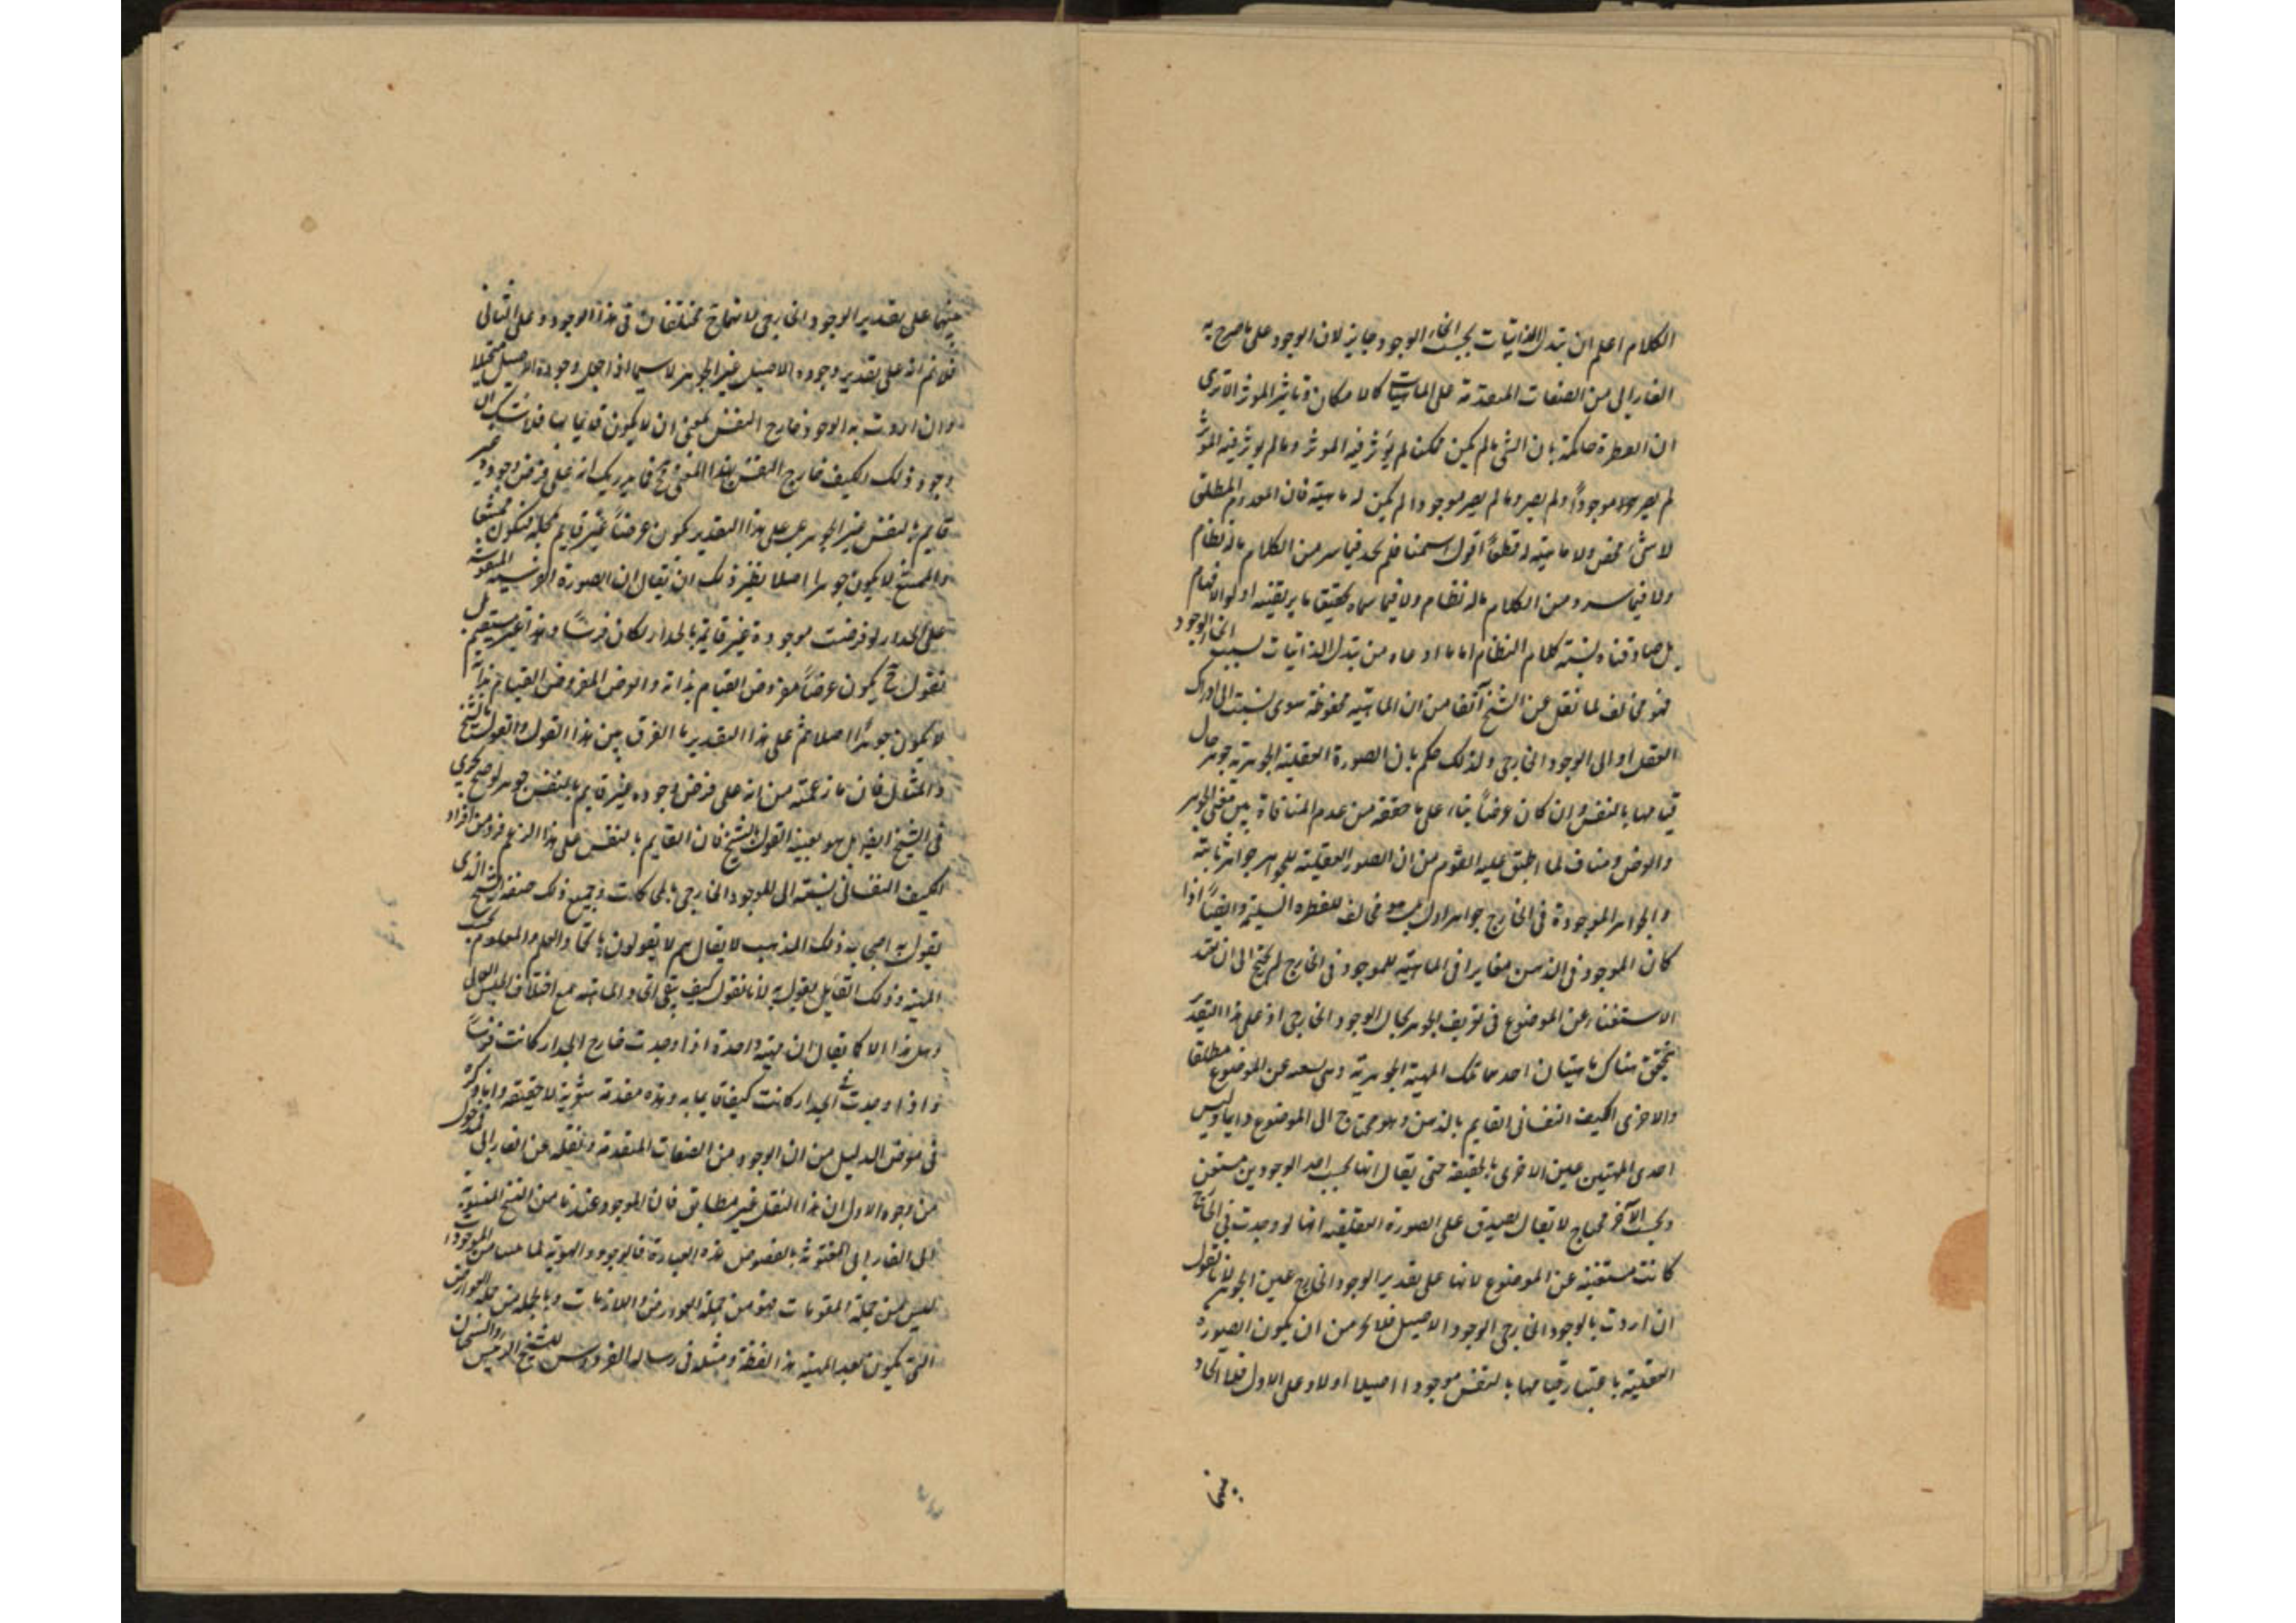 الكلام اعلم ان تبدل الذاتيات بحسب انحاء الوجود جايز لان الوجود على ما صرح به
الفارابى من الصفات المتقدمة على الماهيات كالامكان وتاثير المؤثر الا ترى
ان الفطرة حاكمة بان الشى ما لم يكن ممكن لم يؤثر فيه الموثر وما لم يوثر فيه المؤثر
لم يصر موجوداً ولم يصر وما لم يصر موجودا لم يكن له ماهية فان المعدوم المطلق
لا شئ محض ولا ماهية له قطعاً اقول اسمنا فلم نجد فيما سر من الكلام ماله نظام
ولا فيما سرد من الكلام ماله نظام ولا فيما سماه تحقيقا ما يرتضيه اولو الافهام
بل صادفناه يشبه كلام النظام اما ما ادعاه من تبدل الذاتيات بسبب انحاء الوجود
فهو مخالف لما نقل عن الشيخ آنفا من ان الماهية محفوظة سوى نسبت الى ادراك
العقل او الى الوجود الخارجى ولذلك حكم بان الصورة العقلية الجوهرية جوهر حال
قيامها بالنفس وان كان عرضاً بناء على ما حققه من عدم المنافاة بين معنى الجوهر
والعرض ومناف لما اطبق عليه القوم من ان الصور العقلية للجواهر جواهر ثابتة
والجواهر الموجودة فى الخارج جواهر اول بل هو مخالف للفطره السليمة وايضاً اذا
كان الموجود فى الذهن مغايرا فى الماهية للموجود فى الخارج لم يحتج الى ان يقيد
الاستغناء عن الموضوع فى تعريف الجوهر بحال الوجود الخارجى اذ على هذا التقدير
يتحقق هناك ماهيتان احدهما تلك المهية الجوهرية وهى عن الموضوع مطلقا
والاخرى الكيف النفسانى القايم بالذهن وهو محتاج الى الموضوع دايما وليس
احدى المهيتين عين الاخرى بالحقيقة حتى يقال انها بحسب احد الوجودين مستغن
وبحسب الآخر محتاج لا يقال يصدق على الصورة العقلية انها لو وجدت فى الخارج
كانت مستغنية عن الموضوع لانها على تقدير الوجود الخارج عين الجوهر لانا نقول
ان اردت بالوجود الخارجى الوجود الاصيل فلا يخ من ان يكون الصورة
العقلية باعتبار قيامها بالنفس موجودا اصيلا اولا وعلى الاول فلا اتحاد
بينها على تقدير الوجود الخارجى لانهما ح مختلفان فى هذا الوجود وعلى الثانى
فلانم انه على تقدير وجوده الاصيل عين الجوهر لاسيما اذا جعل وجوده الاصيل مستحيلا
وان اردت به الوجود خارج النفس بمعنى ان لا يكون قايما بها فلا شك ان
وجود ذلك الكيف خارج النفس بهذا المعنى ح فما يدريك انه على فرض وجوده غير
قايم بالنفس عين الجوهر بل على هذا التقدير يكون عرضاً غير قايم بمحله فيكون ممتنعا
والممتنع لا يكون جوهرا اصلا نظير ذلك ان يقال ان الصورة الفرسية المنقوشة
على الجدار لو فرضت موجودة غير قايمة بالجدار لكان فرساً وهذا غير مستقيم بل
نقول ح يكون عرضاً مفروض القيام بذاته والعرض المفروض القيام بذاته
لا يكون جوهراً اصلا ثم على هذا التقدير ما الفرق بين هذا القول والقول بالشبح
والمثال فان ما زعمته من انه على فرض وجوده غير قايم بالنفس جوهر لو صح لجرى
فى الشبح ايضا بل هو بعينه القول بالشبح فان القايم بالنفس على هذا الزعم فرد من افراد
الكيف النفسانى نسبته الى الموجود الخارجى بالمحاكات وجميع ذلك صفة الشبح الذى
يقول به اصحاب ذلك المذهب لا يقال هم لا يقولون باتحاد العلم والمعلوم بحسب
المهية وذلك القايل يقول به لانا نقول كيف يبقى اتحاد الماهية مع اختلاف الجنس العالى
وهل هذا الا كما يقال ان مهية واحدة اذا وجدت خارج الجدار كانت فرساً
واذا وجدت فى الجدار كانت كيفا قايما به وهذه مقدمة شعرية لا حقيقة واما ما ذكره
فى معرض الدليل من ان الوجود من الصفات المتقدمة ونقله عن الفارابى فمدخول
من وجوه الاول ان هذا النقل غير مطابق فان الموجود عندنا من النسخ المنسوبة
الى الفارابى المعنونة بالفصوص هذه العبارة فالوجود والهوية لما من الموجودات
ليس من جملة المقومات فهو من جملة العوارض واللازمات وبالجملة من جملة العوارض
التى يكون بعد المهية هذا لفظه ومثله فى رسالة الفردوس للشيخ الرئيس